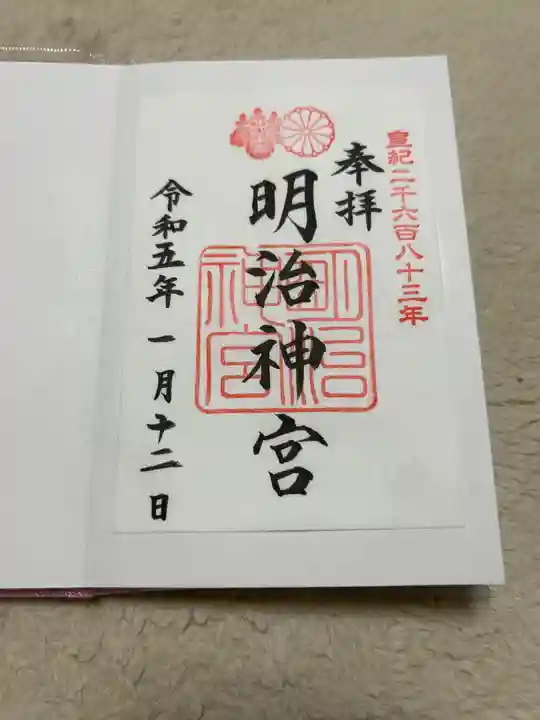 皇紀二千六百八十三年
奉拝
明治神宮
明治神宮
令和五年一月十二日